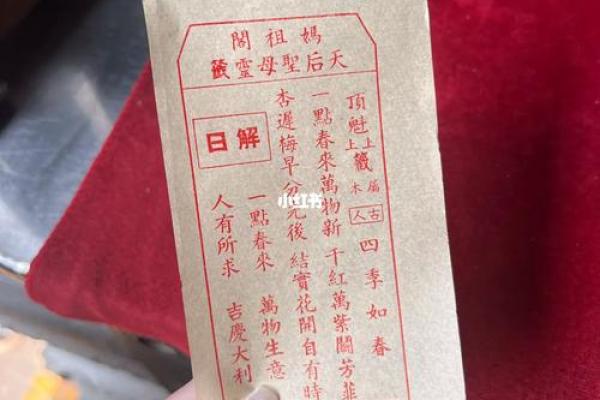 媽祖閣
天后聖母靈籤
頂魁上上籤屬木古人四季如春
一點春來萬物新 千紅萬紫鬪芳菲
杏遲梅早分先後 結實花開自有時
解曰
一點春來 萬物生意
人有所求 吉慶大利
小红书